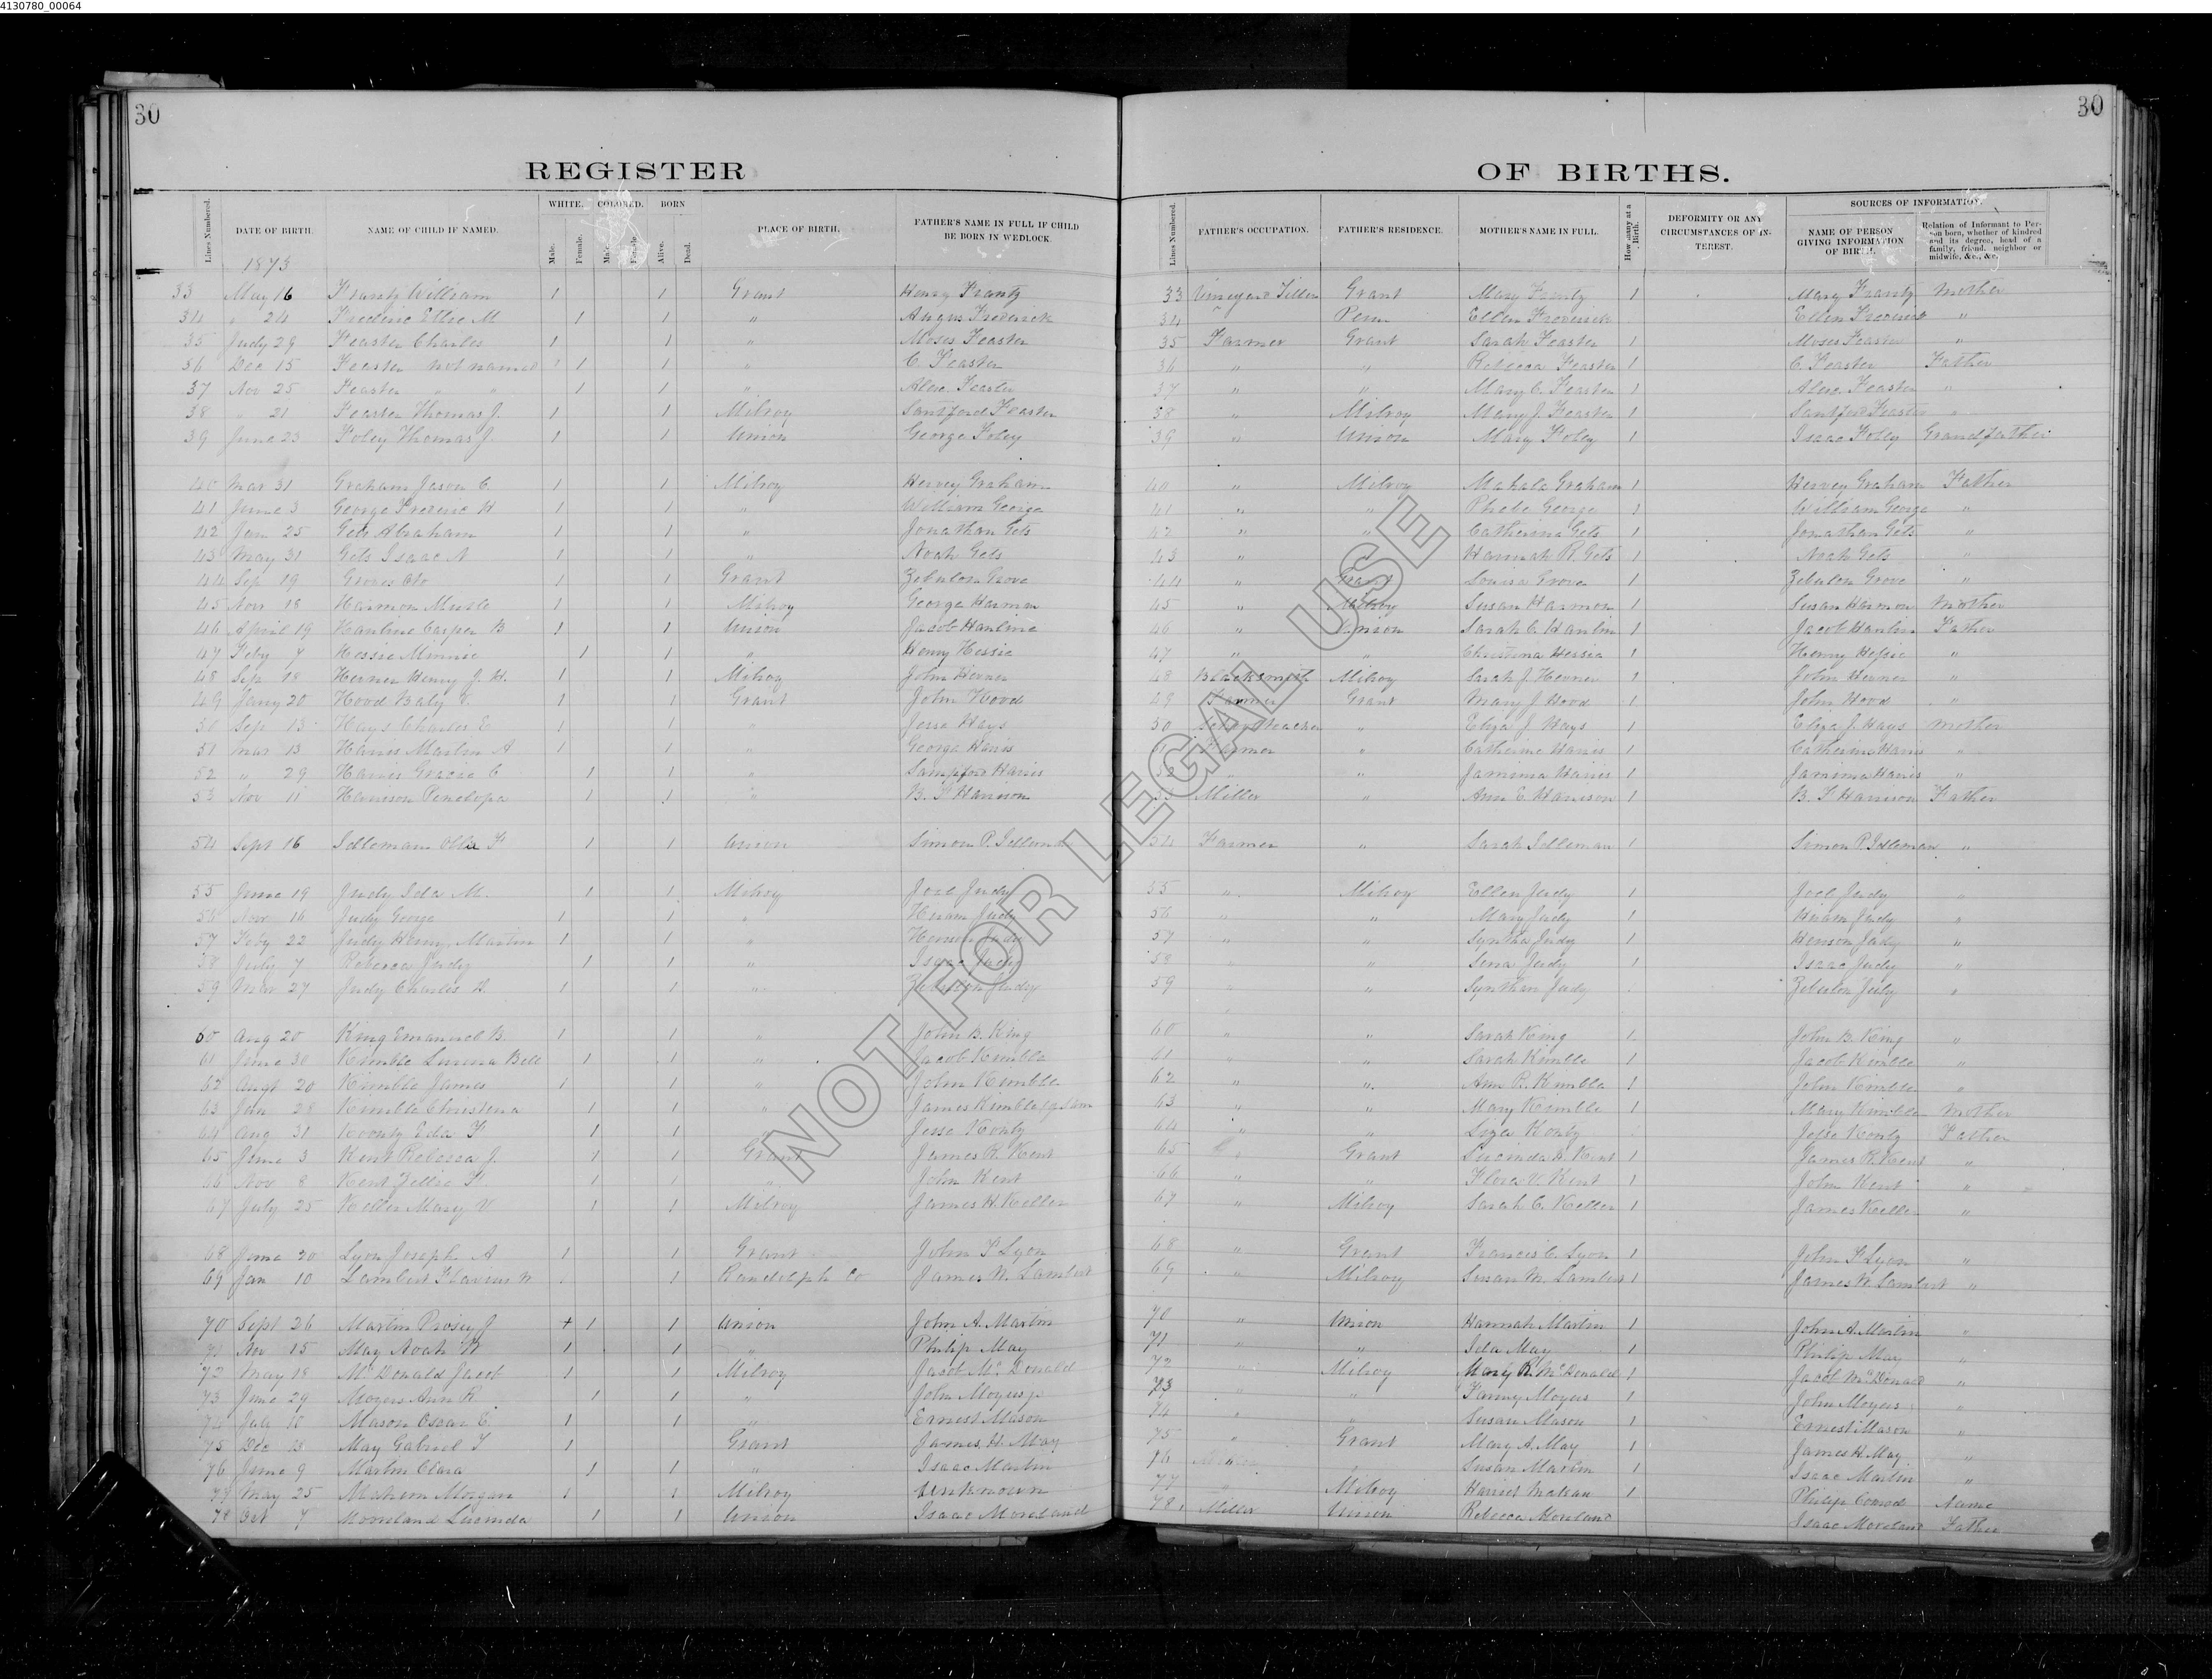 4130780_00064
30
30
REGISTER OF BIRTHS.
Lines Numbered. DATE OF BIRTH. NAME OF CHILD IF NAMED. WHITE. Male. Female. COLORED. Male. Female. BORN Alive. Dead. PLACE OF BIRTH. FATHER'S NAME IN FULL IF CHILD BE BORN IN WEDLOCK. Lines Numbered. FATHER'S OCCUPATION. FATHER'S RESIDENCE. MOTHER'S NAME IN FULL. How many at a Birth. DEFORMITY OR ANY CIRCUMSTANCES OF INTEREST. SOURCES OF INFORMATION. NAME OF PERSON GIVING INFORMATION OF BIRTH. Relation of Informant to Person born, whether of kindred and its degree, head of a family, friend, neighbor or midwife, &c., &c.
1873
33 May 16 Frantz William 1 1 Grant Henry Frantz 33 Vineyard Tiller Grant Mary Frantz 1 Mary Frantz Mother
34 " 24 Frederic Ettie M 1 1 " Angus Frederick 34 " Penn Ellen Frederick Ellen Frederick "
35 Judy 29 Feaster Charles 1 1 " Moses Feaster 35 Farmer Grant Sarah Feaster 1 Moses Feaster "
36 Dec 15 Feaster not named 1 1 " C. Feaster 36 " " Rebecca Feaster 1 C. Feaster Father
37 Nov 25 Feaster " " 1 1 " Alex. Feaster 37 " " Mary C. Feaster 1 Alex. Feaster "
38 " 21 Feaster Thomas J. 1 1 Milroy Santford Feaster 38 " Milroy Mary J. Feaster 1 Santford Feaster "
39 June 23 Foley Thomas J. 1 1 Union George Foley 39 " Union Mary Foley 1 Isaac Foley Grandfather
40 Mar 31 Graham Jason C. 1 1 Milroy Hervey Graham 40 " Milroy Mahala Graham 1 Hervey Graham Father
41 June 3 George Frederic H 1 1 " William George 41 " " Phebe George 1 William George "
42 Jan 25 Gets Abraham 1 1 " Jonathan Gets 42 " " Catherina Gets 1 Jonathan Gets "
43 May 31 Gets Isaac N 1 1 " Noah Gets 43 " " Hannah R. Gets 1 Noah Gets "
44 Sep 19 Groves Oto 1 1 Grant Zebulon Grove 44 " Grant Louisa Grove 1 Zebulon Grove "
45 Nov 18 Harmon 1 1 Milroy George Harman 45 " Milroy Susan Harmon 1 Susan Harmon Mother
46 April 19 Hanline Casper B 1 1 Union Jacob Hanline 46 " Union Sarah C. Hanlin 1 Jacob Hanlin Father
47 Feby 7 Hessie Minnie 1 1 " Henry Hessie 47 " " Christina Hessie 1 Henry Hessie "
48 Sep 18 Hevner Henry J. H. 1 1 Milroy John Hevner 48 Blacksmith Milroy Sarah J. Hevner 1 John Hevner "
49 Jany 20 Hood Baly V. 1 1 Grant John Hood 49 Farmer Grant Mary J. Hood 1 John Hood "
50 Sep 13 Hays Charles E 1 1 " Jesse Hays 50 School teacher " Eliza J. Hays 1 Eliza J. Hays Mother
51 Mar 13 Harris Martin A 1 1 " George Harris 51 Farmer " Catherine Harris 1 Catherine Harris "
52 " 29 Harris Gracie C 1 1 " Sampford Harris 52 " " Jamima Harris 1 Jamima Harris "
53 Nov 11 Harrison Penelopa 1 1 " B. F Harrison 53 Miller " Ann E. Harrison 1 B. F Harrison Father
54 Sept 16 Idleman Olla F 1 1 Union Simon P. Idleman 54 Farmer " Sarah Idleman 1 Simon P. Idleman "
55 June 19 Judy Ida M. 1 1 Milroy Joel Judy 55 " Milroy Ellen Judy 1 Joel Judy "
56 Nov 16 Judy George 1 1 " Hiram Judy 56 " " Mary Judy 1 Hiram Judy "
57 Feby 22 Judy Henry Martin 1 1 " Henson Judy 57 " " Syntha Judy 1 Henson Judy "
58 July 7 Rebecca Judy 1 1 " Isaac Judy 58 " " Sena Judy 1 Isaac Judy "
59 Mar 27 Judy Charles H. 1 1 " Zebulon Judy 59 " " Synthan Judy Zebulon Judy "
60 Aug 20 King Emanuel B. 1 1 " John B. King 60 " " Sarah King 1 John B. King "
61 June 30 Kimble Belle 1 1 " Jacob Kimble 61 " " Sarah Kimble 1 Jacob Kimble "
62 Augt 20 Kimble James 1 1 " John Kimble 62 " " Ann R. Kimble 1 John Kimble "
63 Jan 28 Kimble Christena 1 1 " James Kimble 63 " " Mary Kimble 1 Mary Kimble Mother
64 Aug 31 Koonty Eda F 1 1 " Jesse Konty 64 " " Liza Konty Jesse Konty Father
65 June 3 Kent Rebecca J. 1 1 Grant James R. Kent 65 " Grant Lucinda Kent 1 James R. Kent "
66 Nov 8 Kent Zellie F. 1 1 " John Kent 66 " " Flora V. Kent 1 John Kent "
67 July 25 Keller Mary V 1 1 Milroy James H. Keller 67 " Milroy Sarah C. Keller 1 James Keller "
68 June 20 Lyon Joseph A 1 1 Grant John F Lyon 68 " Grant Francis C. Lyon 1 John F Lyon "
69 Jan 10 Lambert Flavius 1 Randolph Co James W. Lambert 69 " Milroy Susan M. Lambert 1 James W. Lambert "
70 Sept 26 Martin Prosey J + 1 1 Union John A. Martin 70 " Union Hannah Martin 1 John A. Martin "
71 Nov 15 May Noah W 1 1 " Philip May 71 " " Ida May 1 Philip May "
72 May 18 McDonald Jacob 1 1 Milroy Jacob McDonald 72 " Milroy Mary R. McDonald 1 Jacob McDonald "
73 June 29 Moyers Ann R. 1 1 " John Moyers jr 73 " " Fanny Moyers 1 John Moyers "
74 July 10 Mason Oscar E. 1 1 " Ernest Mason 74 " " Susan Mason 1 Ernest Mason "
75 Dec 13 May Gabriel T 1 Grant James H. May 75 " Grant Mary A. May 1 James H. May "
76 June 9 Martin Clara 1 1 " Isaac Martin 76 " Susan Martin 1 Isaac Martin "
77 May 25 Morgan 1 1 Milroy Unknown 77 " Milroy Harriet 1 Philip Conrad
78 Oct 7 Moreland Lucinda 1 1 Union Isaac Moreland 78 Miller Union Rebecca Moreland Isaac Moreland Father
NOT FOR LEGAL USE